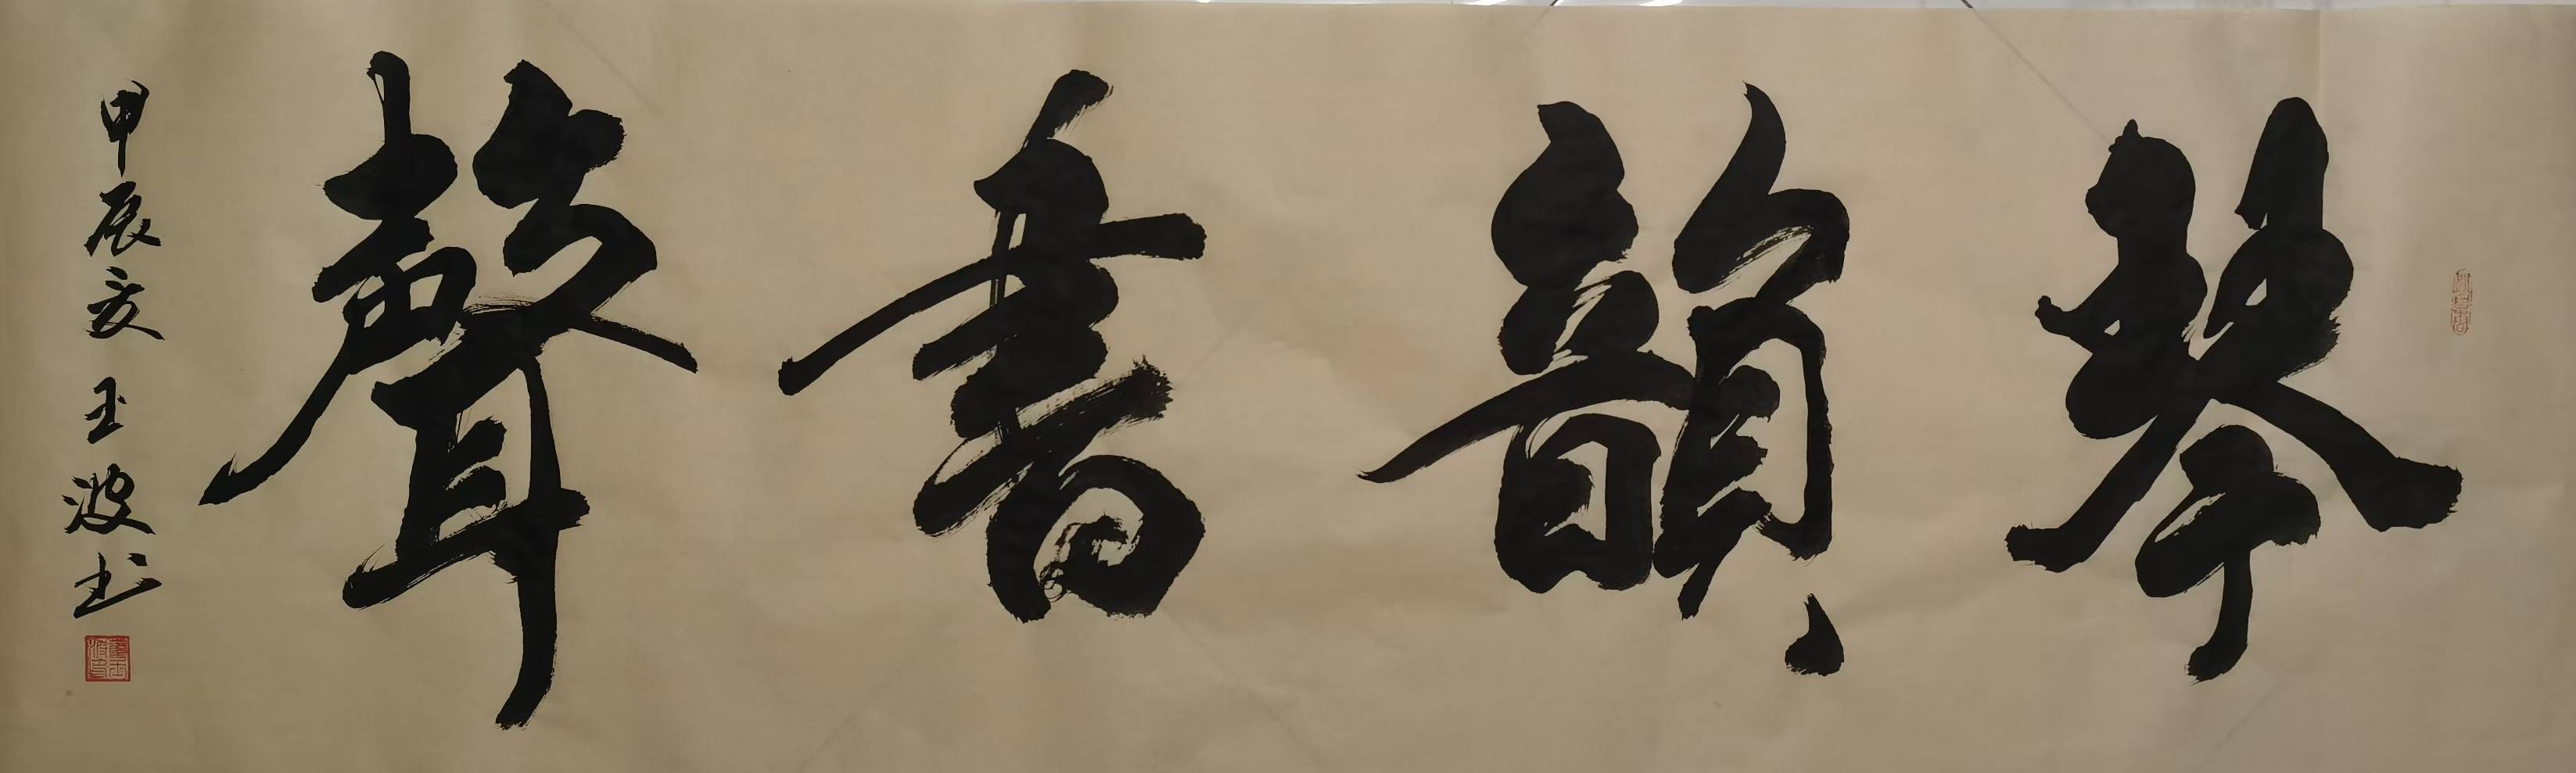 琴韻書聲
甲辰亥玉波书